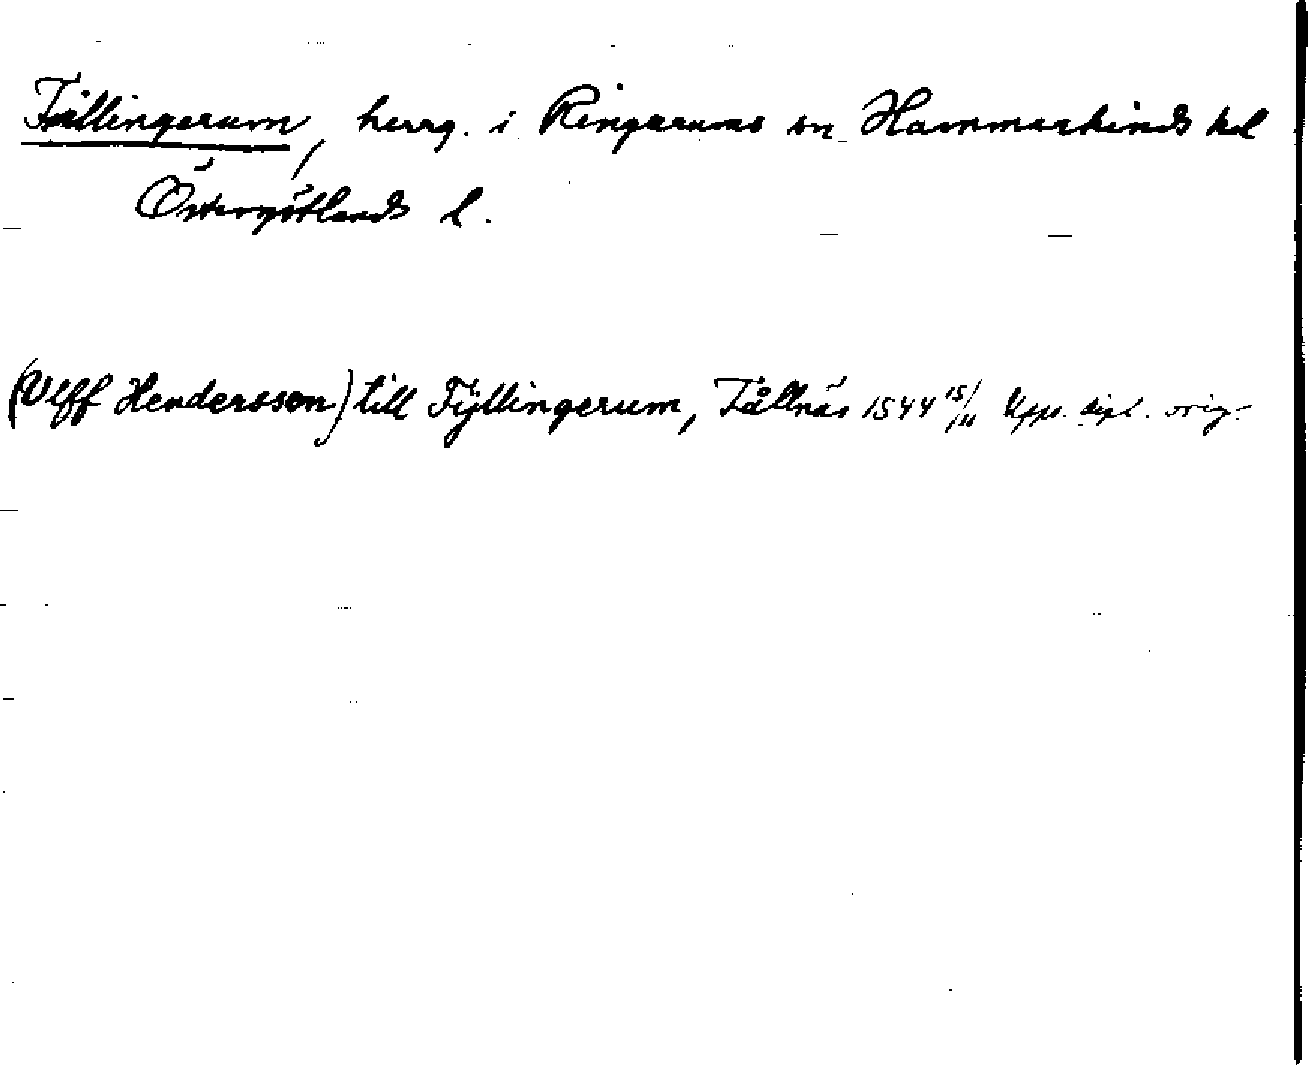 Fällingerum, herrg. i Ringarums sn Hammarkinds hd
Östergötlands l.
(Ulff Hendersson) till Fyllingerum, Tållnäs 1544 15/11 Upps. dipl. orig.